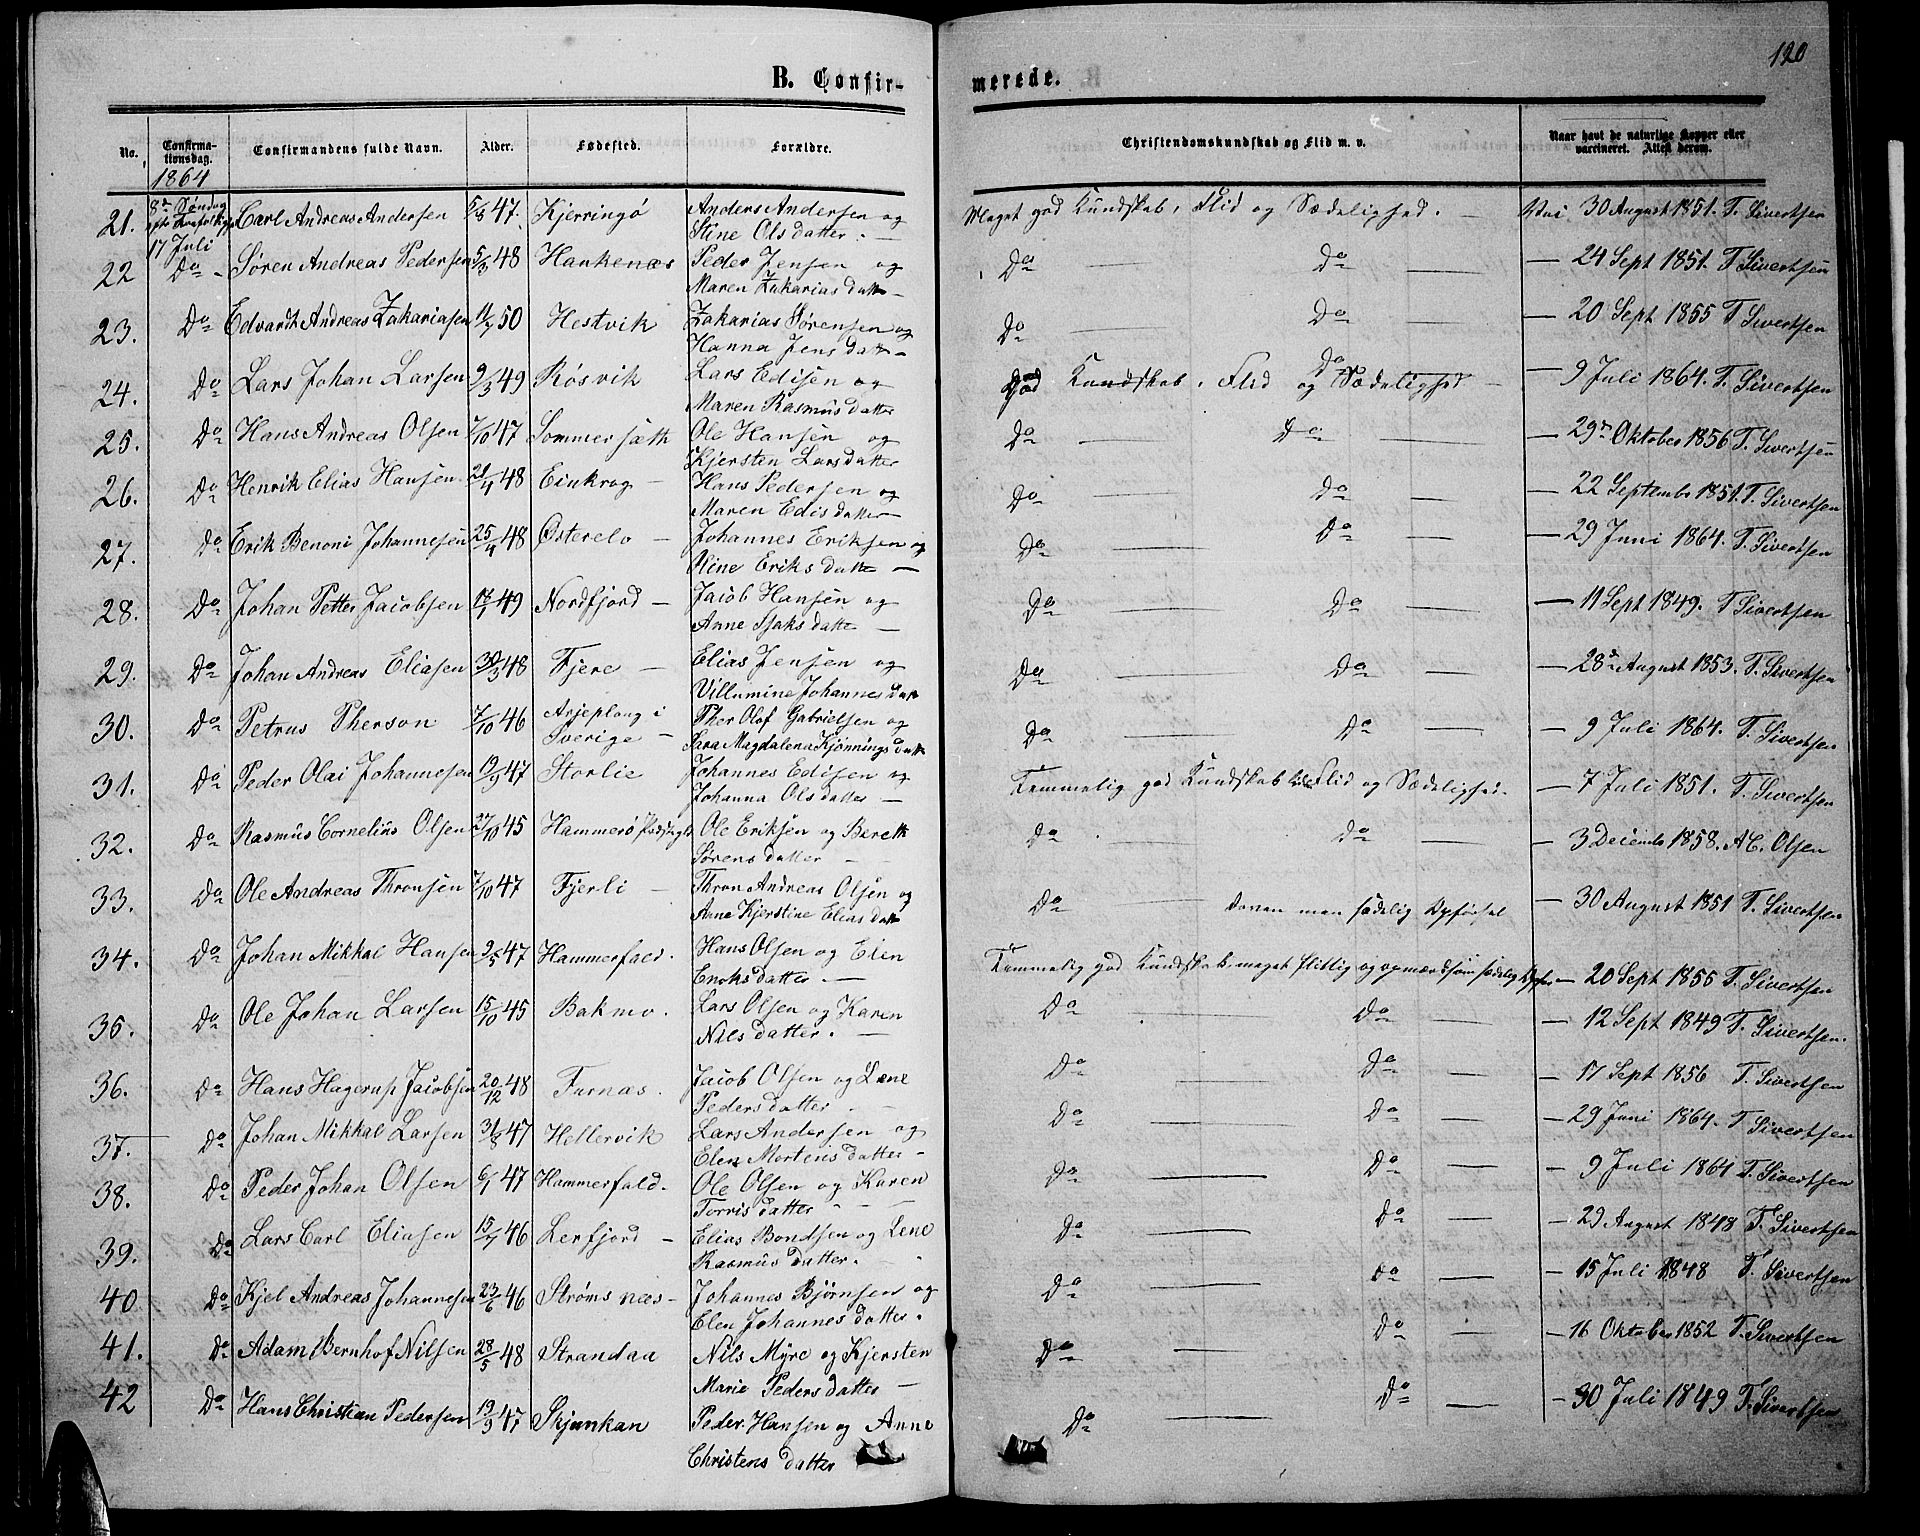 120
B. Confir-
merede.
No.
Confirma-
tionsdag.
Confirmandens fulde Navn.
Alder.
Fødested.
Forældre.
Christendomskundskab og Flid m. v.
Naar havt de naturlige Kopper eller
vaccineret. Attest derom.
1864
21. 8de Søndag Carl Andreas Andersen 5/8 47. Kjerringø Anders Andersen og Meget god Kundskab, Flid og Sædelighed. — Vac 30 August 1851. T. Sivertsen
17 Juli Stine Olsdatter. —
22 Do Søren Andreas Pedersen 5/3 48 Hankenæs Peder Jensen og Do — Do — — 24 Sept 1851. T. Sivertsen
Maren Zakariasdatt —
23. Do Edvardt Andreas Zakariasen 11/7 50 Hestvik Zakarias Sørensen og Do — Do — — 20 Sept 1855 T. Sivertsen
Hanna Jensdatt —
24. Do Lars Johan Larsen 9/3 49 Røsvik Lars Edisen og God Kundskab, Flid og Sædelighed — Do — 9 Juli 1864. T. Sivertsen
Maren Rasmusdatter
25. Do Hans Andreas Olsen 7/10 47 Sommersætt Ole Hansen og Do — Do — — 29de Oktober 1856 T. Sivertsen
Kjersten Larsdatter
26. Do Henrik Elias Hansen. 21/4 48 Einkrog — Hans Pedersen og Do — Do — — 22 Septembr 1851. T. Sivertsen
Maren Edisdatter —
27. Do Erik Benoni Johannesen 25/4 48 Østerelv — Johannes Eriksen og Do — Do — — 29 Juni 1864. T. Sivertsen
Stine Eriksdatte —
28. Do Johan Petter Jacobsen 49 Nordfjord — Jacob Hansen og Do — Do — — 11 Sept 1849. T. Sivertsen
Anne Isaksdatte —
29. Do Johan Andreas Eliasen 30/3 48 Fjere — Elias Jensen og Do — Do — — 28de August 1853. T. Sivertsen
Villumine Johannesdatt
30. Do Petrus Pherson 7/10 46 Arjeploug i Pher Olof Gabrielsen og Do — Do — — 9 Juli 1864. T. Sivertsen
Sverige — Sara Magdalena Kjønningsdatt
31. Do Peder Olai Johannesen 19/9 47 Storlie Johannes Edisen og Temmelig god Kundskab Flid og Sædelighed. — 7 Juli 1851. T. Sivertsen
Johanna Olsdatter —
32. Do Rasmus Cornelius Olsen 27/10 45 Hammerø Præstegjeld Ole Eriksen og Berett Do — Do — — 3 December 1858. A C. Olsen
Sørensdatter —
33. Do Ole Andreas Thronsen 7/10 47 Fjerli — Thron Andreas Olsen og Do — sædelig Opførsel — 30 August 1851 T. Sivertsen
Anne Kjerstine Eliasdatt
34. Do Johan Mikkal Hansen 9/5 47 Hammerfald. Hans Olsen og Elen Temmelig god Kundskab, meget flittig og opmærdsom sædelig Opfør — 20 Sept 1855 T. Sivertsen
Enoksdatter —
35. Do Ole Johan Larsen 15/10 45 Bakmo. Lars Olsen og Karen Do Do — — 12 Sept 1849 T. Sivertsen.
Nilsdatter. —
36. Do Hans Hagerup Jacobsen 20/12 48 Furnæs. Jacob Olsen og Lene Do — Do — — 17 Sept 1856 T. Sivertsen
Pedersdatter —
37. Do Johan Mikkal Larsen 31/8 47 Hellervik Lars Andersen og Do — Do — — 29 Juni 1864. T. Sivertsen
Elen Mortensdatter —
38. Do Peder Johan Olsen 6/1 47 Hammerfald. Ole Olsen og Karen Do — Do — — 9 Juli 1864 T. Sivertsen
Torrisdatter —
39. Do Lars Carl Eliasen 15/7 46 Lerfjord — Elias Bondsen og Lene Do — Do — — 29 August 1848 T. Sivertsen
Rasmusdatter.
40 Do Kjel Andreas Johannesen 23/6 46 Strømsnæs — Johannes Bjørnsen og Do — Do — — 15 Juli 1848 T. Sivertsen
Elen Johannesdatter.
41. Do Adam Bernhof Nilsen 28/5 48 Strandaa Nils Myre og Kjersten Do — Do — — 16 Oktober 1852 T. Sivertsen
Marie Pedersdatter —
42 Do Hans Christian Pedersen 19/3 47 Skjunkan Peder Hansen og Anne Do — Do — — 30 Juli 1849 T. Sivertsen
Christensdatter